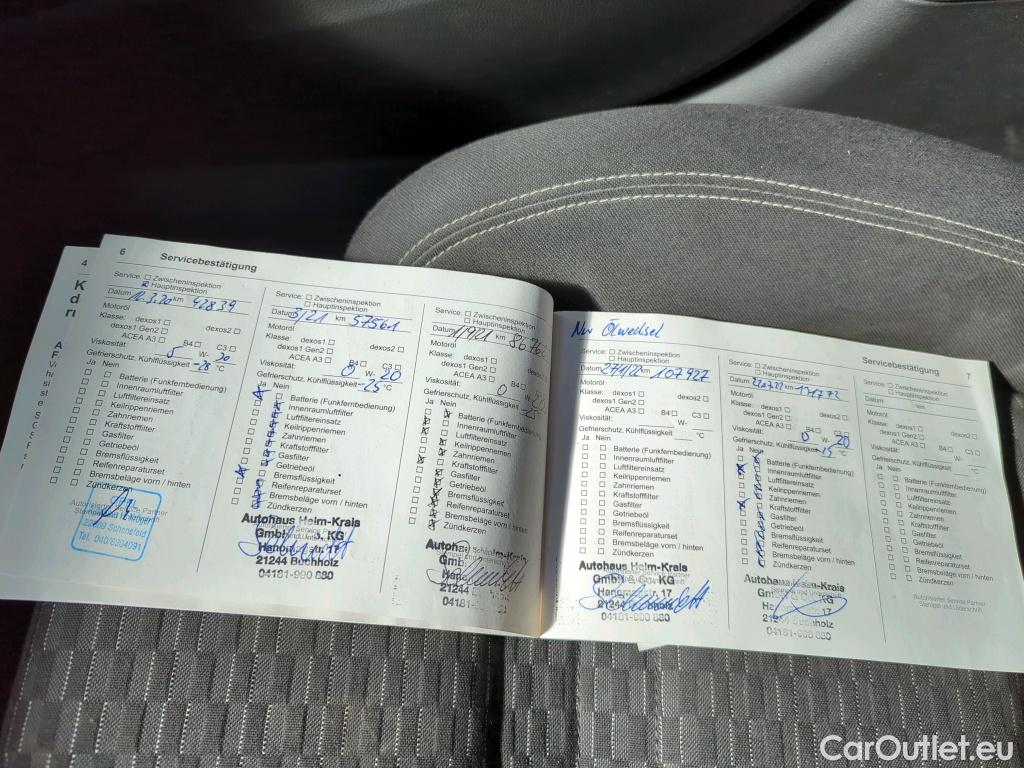 4
6 Servicebestätigung
Service: Zwischeninspektion
Hauptinspektion
Datum 12.3.20 km 42839
Motoröl
Klasse: dexos1 dexos2
dexos1 Gen2
ACEA A3 B4 C3
Viskosität: 5 W- 30
Gefrierschutz, Kühlflüssigkeit -28 °C
Ja Nein
Batterie (Funkfernbedienung)
Innenraumluftfilter
Luftfiltereinsatz
Keilrippenriemen
Zahnriemen
Kraftstofffilter
Gasfilter
Getriebeöl
Bremsflüssigkeit
Reifenreparaturset
Bremsbeläge vorn / hinten
Zündkerzen
Tel. 040/
Service: Zwischeninspektion
Hauptinspektion
Datum 3/21 km 57561
Motoröl
Klasse: dexos1 dexos2
dexos1 Gen2
ACEA A3 B4 C3
Viskosität: 0 W- 20
Gefrierschutz, Kühlflüssigkeit -25 °C
Ja Nein
Batterie (Funkfernbedienung)
Innenraumluftfilter
Luftfiltereinsatz
Keilrippenriemen
Zahnriemen
Kraftstofffilter
Gasfilter
Getriebeöl
Bremsflüssigkeit
Reifenreparaturset
Bremsbeläge vorn / hinten
Zündkerzen
Autohaus Heim-Krais
GmbH & Co. KG
21244 Buchholz
04181-990 880
Service: Zwischeninspektion
Hauptinspektion
Datum km
Motoröl
Klasse: dexos1
dexos1 Gen2
ACEA A3 B4
Viskosität: 0
Gefrierschutz, Kühlflüssigkeit
Ja Nein
Batterie (Funkfernbedienung)
Innenraumluftfilter
Luftfiltereinsatz
Keilrippenriemen
Zahnriemen
Kraftstofffilter
Gasfilter
Getriebeöl
Bremsflüssigkeit
Reifenreparaturset
Bremsbeläge vorn / hinten
Zündkerzen
21244
04181-
Nur Ölwechsel
Service: Zwischeninspektion
Hauptinspektion
Datum km 107927
Motoröl
Klasse: dexos1 dexos2
dexos1 Gen2
ACEA A3 B4 C3
Viskosität: W-
Gefrierschutz, Kühlflüssigkeit °C
Ja Nein
Batterie (Funkfernbedienung)
Innenraumluftfilter
Luftfiltereinsatz
Keilrippenriemen
Zahnriemen
Kraftstofffilter
Gasfilter
Getriebeöl
Bremsflüssigkeit
Reifenreparaturset
Bremsbeläge vorn / hinten
Zündkerzen
Autohaus Heim-Krais
GmbH & Co. KG
21244 Buchholz
04181-990 880
Servicebestätigung 7
Service: Zwischeninspektion
Hauptinspektion
Datum km
Motoröl
Klasse: dexos1 dexos2
dexos1 Gen2
ACEA A3 B4 C3
Viskosität: 0 W- 20
Gefrierschutz, Kühlflüssigkeit °C
Ja Nein
Batterie (Funkfernbedienung)
Innenraumluftfilter
Luftfiltereinsatz
Keilrippenriemen
Zahnriemen
Kraftstofffilter
Gasfilter
Getriebeöl
Bremsflüssigkeit
Reifenreparaturset
Bremsbeläge vorn / hinten
Zündkerzen
Autohaus Heim-Krais
KG
17
Buchholz
04181-990 880
Service: Zwischeninspektion
Hauptinspektion
Datum km
Motoröl
Klasse: dexos1 dexos2
dexos1 Gen2
ACEA A3 B4 C3
Viskosität: W-
Gefrierschutz, Kühlflüssigkeit °C
Ja Nein
Batterie (Funkfernbedienung)
Innenraumluftfilter
Luftfiltereinsatz
Keilrippenriemen
Zahnriemen
Kraftstofffilter
Gasfilter
Getriebeöl
Bremsflüssigkeit
Reifenreparaturset
Bremsbeläge vorn / hinten
Zündkerzen
Autorisierter Service Partner
Stempel und Unterschrift
CarOutlet.eu